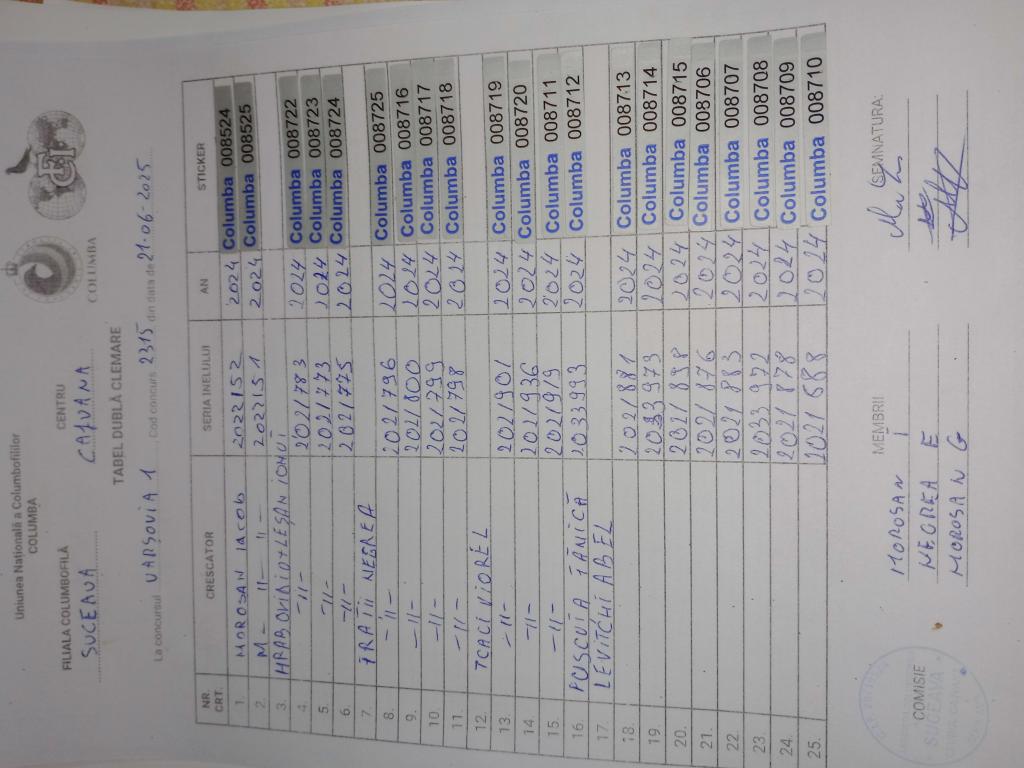 Uniunea Națională a Columbofililor
COLUMBA
FILIALA COLUMBOFILĂ CENTRU
SUCEAVA CAJVANA
COLUMBA
TABEL DUBLĂ CLEMARE
La concursul VARȘOVIA 1 Cod concurs 2315 din data de 21.06.2025
NR. CRT. CRESCATOR SERIA INELULUI AN STICKER
1. MOROSAN IACOB 202152 2024 Columba 008524
2. M - 11 - 11 - 202151 2024 Columba 008525
3. HRABOVIANIO+LEȘAN IONUȚ
4. -11- 2021783 2024 Columba 008722
5. -11- 2021773 2024 Columba 008723
6. -11- 2021775 2024 Columba 008724
7. FRAȚII NEGREA
8. -11- 2021796 2024 Columba 008725
9. -11- 2021800 2024 Columba 008716
10. -11- 2021799 2024 Columba 008717
11. -11- 2021798 2024 Columba 008718
12. TCACI VIOREL
13. -11- 2021901 2024 Columba 008719
14. -11- 2021936 2024 Columba 008720
15. -11- 2021919 2024 Columba 008711
16. PUSCUȚA TĂNICĂ 2033993 2024 Columba 008712
17. LEVITCHI ABEL
18. 2021881 2024 Columba 008713
19. 2033973 2024 Columba 008714
20. 2021898 2024 Columba 008715
21. 2021876 2024 Columba 008706
22. 2021883 2024 Columba 008707
23. 2033972 2024 Columba 008708
24. 2021878 2024 Columba 008709
25. 2021688 2024 Columba 008710
COMISIE MEMBRII SEMNATURA:
MOROSAN I
NEGREA E
MOROSAN G
SUCEAVA